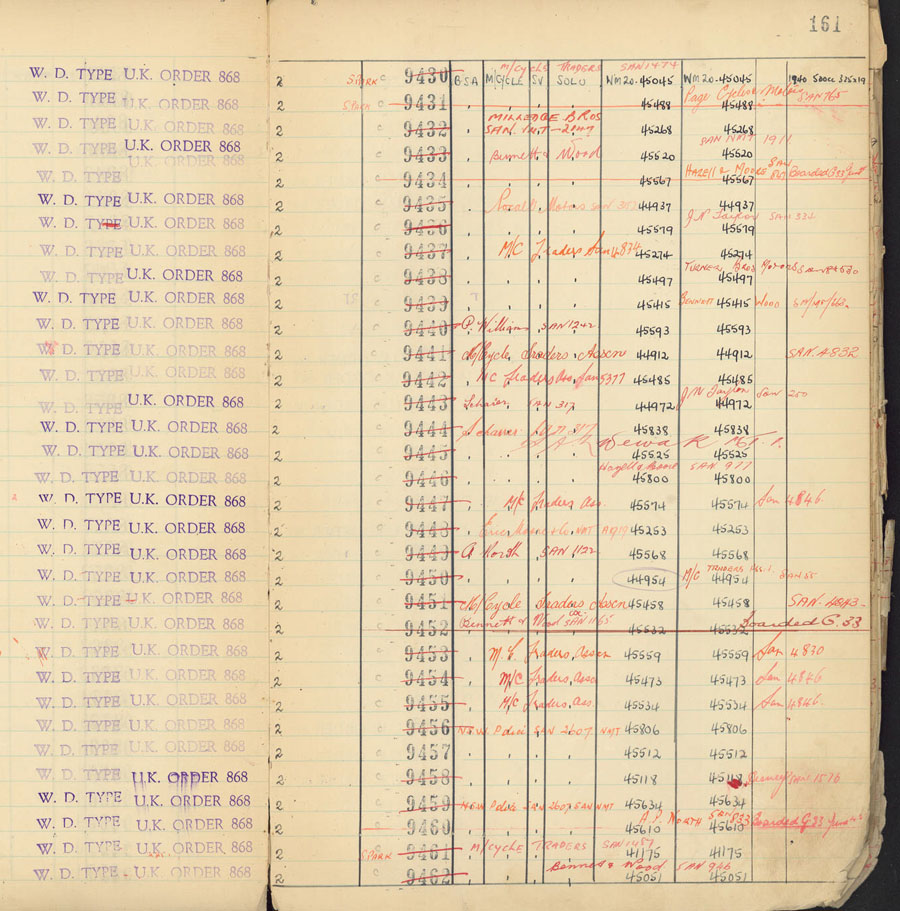 161
W. D. TYPE U.K. ORDER 868 2 SPARK C 9430 BSA M/CYCLE SV SOLO M/CYCLE TRADERS SAN 1474 WM20-45045 WM20-45045 1940 500cc
W. D. TYPE U.K. ORDER 868 2 SPARK C 9431 45488 45488 Page Cycles & Motors SAN 765
W. D. TYPE U.K. ORDER 868 2 C 9432 BROS SAN 45268 45268
W. D. TYPE U.K. ORDER 868 2 C 9433 Bennett & Wood 45520 45520 SAN 1911
W. D. TYPE 2 C 9434 45567 45567 HAZELL & MOORE SAN Boarded G33
W. D. TYPE U.K. ORDER 868 2 C 9435 Motors SAN 44937 44937
W. D. TYPE U.K. ORDER 868 2 C 9436 45579 45579 J.N. Taylor SAN
W. D. TYPE U.K. ORDER 868 2 C 9437 M/C Traders San 4834 45274 45274
W. D. TYPE U.K. ORDER 868 2 C 9438 45497 45497 TURNER BROS MOTORS
W. D. TYPE U.K. ORDER 868 2 C 9439 45415 45415 BENNETT WOOD
W. D. TYPE U.K. ORDER 868 2 C 9440 P. Williams SAN 1242 45593 45593
W. D. TYPE U.K. ORDER 868 2 C 9441 M/Cycle Traders Asscn 44912 44912 SAN. 4832
W. D. TYPE U.K. ORDER 868 2 C 9442 M/C Traders Ass. San 5377 45485 45485
W. D. TYPE U.K. ORDER 868 2 C 9443 SAN 317 44972 44972 J.N Taylor San 250
W. D. TYPE U.K. ORDER 868 2 C 9444 317 45838 45838
W. D. TYPE U.K. ORDER 868 2 C 9445 45525 45525
W. D. TYPE U.K. ORDER 868 2 C 9446 45800 45800 Hazell & Moore SAN 977
W. D. TYPE U.K. ORDER 868 2 C 9447 M/C Traders Ass. 45574 45574 San 4846
W. D. TYPE U.K. ORDER 868 2 C 9448 Eric 45253 45253
W. D. TYPE U.K. ORDER 868 2 C 9449 A North SAN 1122 45568 45568
W. D. TYPE U.K. ORDER 868 2 C 9450 44954 M/C TRADERS 44954 SAN
W. D. TYPE U.K. ORDER 868 2 C 9451 M/Cycle Traders Asscn 45458 45458 SAN. 4843
W. D. TYPE U.K. ORDER 868 2 C 9452 Bennett & Wood SAN 1165 45532 45532 Boarded G. 33
W. D. TYPE U.K. ORDER 868 2 C 9453 M.C. Traders Asscn 45559 45559 San 4830
W. D. TYPE U.K. ORDER 868 2 C 9454 M/C Traders Assc 45473 45473 San 4846
W. D. TYPE U.K. ORDER 868 2 C 9455 M/C Traders. Ass. 45534 45534 San 4846.
W. D. TYPE U.K. ORDER 868 2 C 9456 N.S.W. Police SAN 2607 NMT 45806 45806
W. D. TYPE U.K. ORDER 868 2 C 9457 45512 45512
W. D. TYPE U.K. ORDER 868 2 C 9458 45118 45118 1576
W. D. TYPE U.K. ORDER 868 2 C 9459 N.S.W Police SAN 2607 45634 45634
W. D. TYPE U.K. ORDER 868 2 C 9460 45610 45610 A.P. NORTH SAN 833 Boarded G 33
W. D. TYPE U.K. ORDER 868 2 SPARK C 9461 M/CYCLE TRADERS SAN 1487 41175 41175
W. D. TYPE U.K. ORDER 868 2 C 9462 Bennett & Wood SAN 946 45051 45051